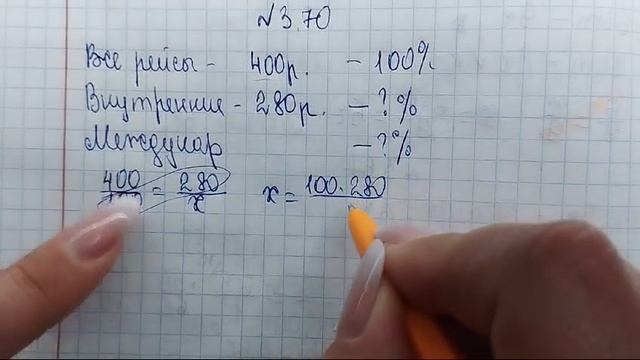 №3.70
Все рейсы - 400р. - 100%
Внутренние - 280р. - ?%
Междунар - ?%
400 = 280 x = 100·280
x